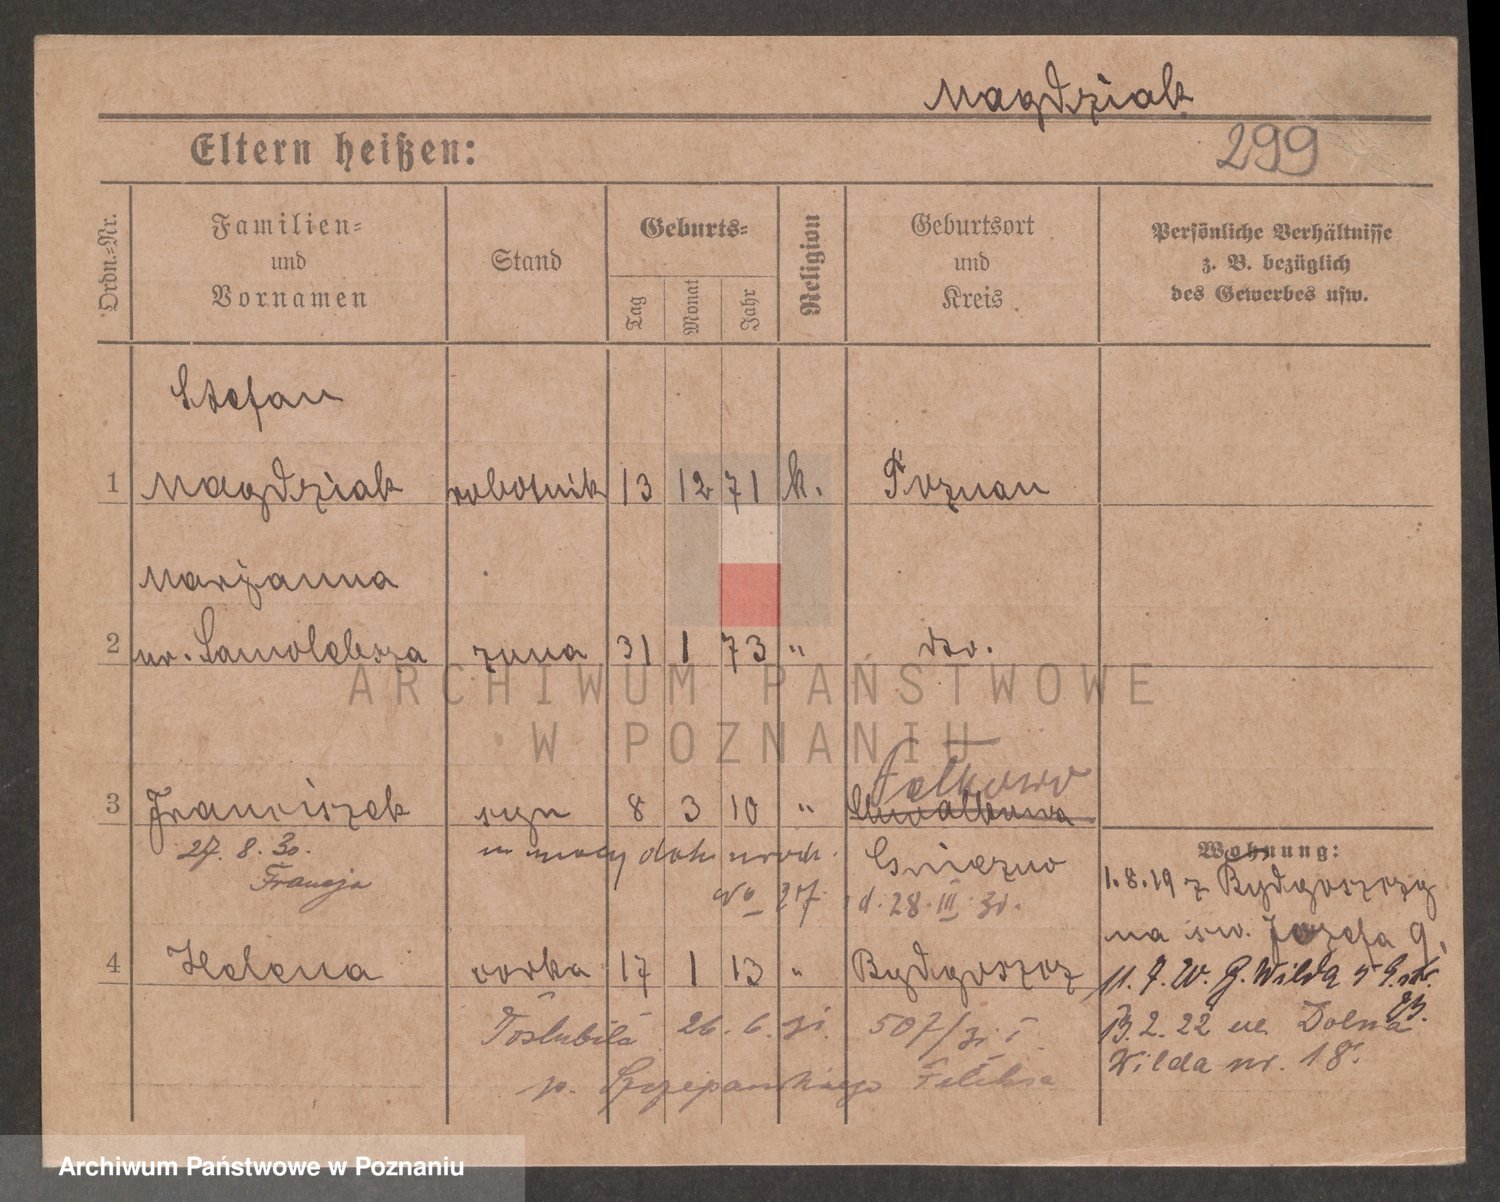 Magdziak
299
Eltern heißen:
Ordn.-Nr.
Familien-
und
Vornamen
Stand
Geburts-
Tag
Monat
Jahr
Religion
Geburtsort
und
Kreis
Persönliche Verhältnisse
z. B. bezüglich
des Gewerbes usw.
Stefan
1 Magdziak robotnik 13 12 71 k. Poznan
Marjanna
2 ur. żona 31 1 73 " dto.
Falkowo
3 Franciszek syn 8 3 10 "
27. 8. 30. w mocy dok. urodz. Gniezno
Francja
No 27. d. 28. III. 31.
Wohnung:
1.8.19 z Bydgoszczy
na św. Józefa 9,
4 Helena corka 17 1 13 " Bydgoszcz
11. 7. 20. G. Wilda
Poślubiła 26. 6. 31. 507/31
13. 2. 22 Dolna
Wilda nr. 18.
p. Szczepańskiego Feliksa
ARCHIWUM PAŃSTWOWE
W POZNANIU
Archiwum Państwowe w Poznaniu